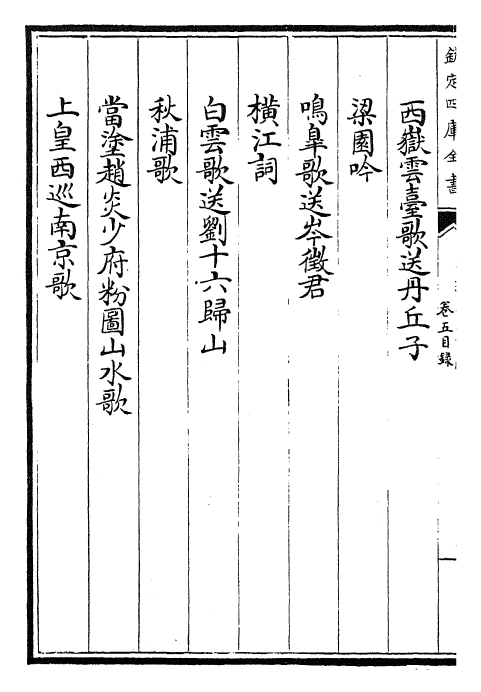 欽定四庫全書
卷五目録
西嶽雲臺歌送丹丘子
梁園吟
鳴臯歌送岑徵君
橫江詞
白雲歌送劉十六歸山
秋浦歌
當塗趙炎少府粉圖山水歌
上皇西巡南京歌